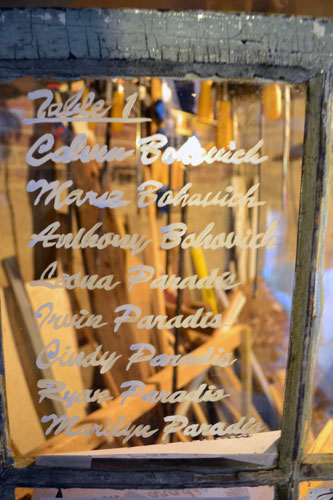 Table 1
Calvin Bohavich
Marie Bohavich
Anthony Bohovich
Leona Paradis
Irvin Paradis
Cindy Paradis
Ryan Paradis
Marilyn Paradis